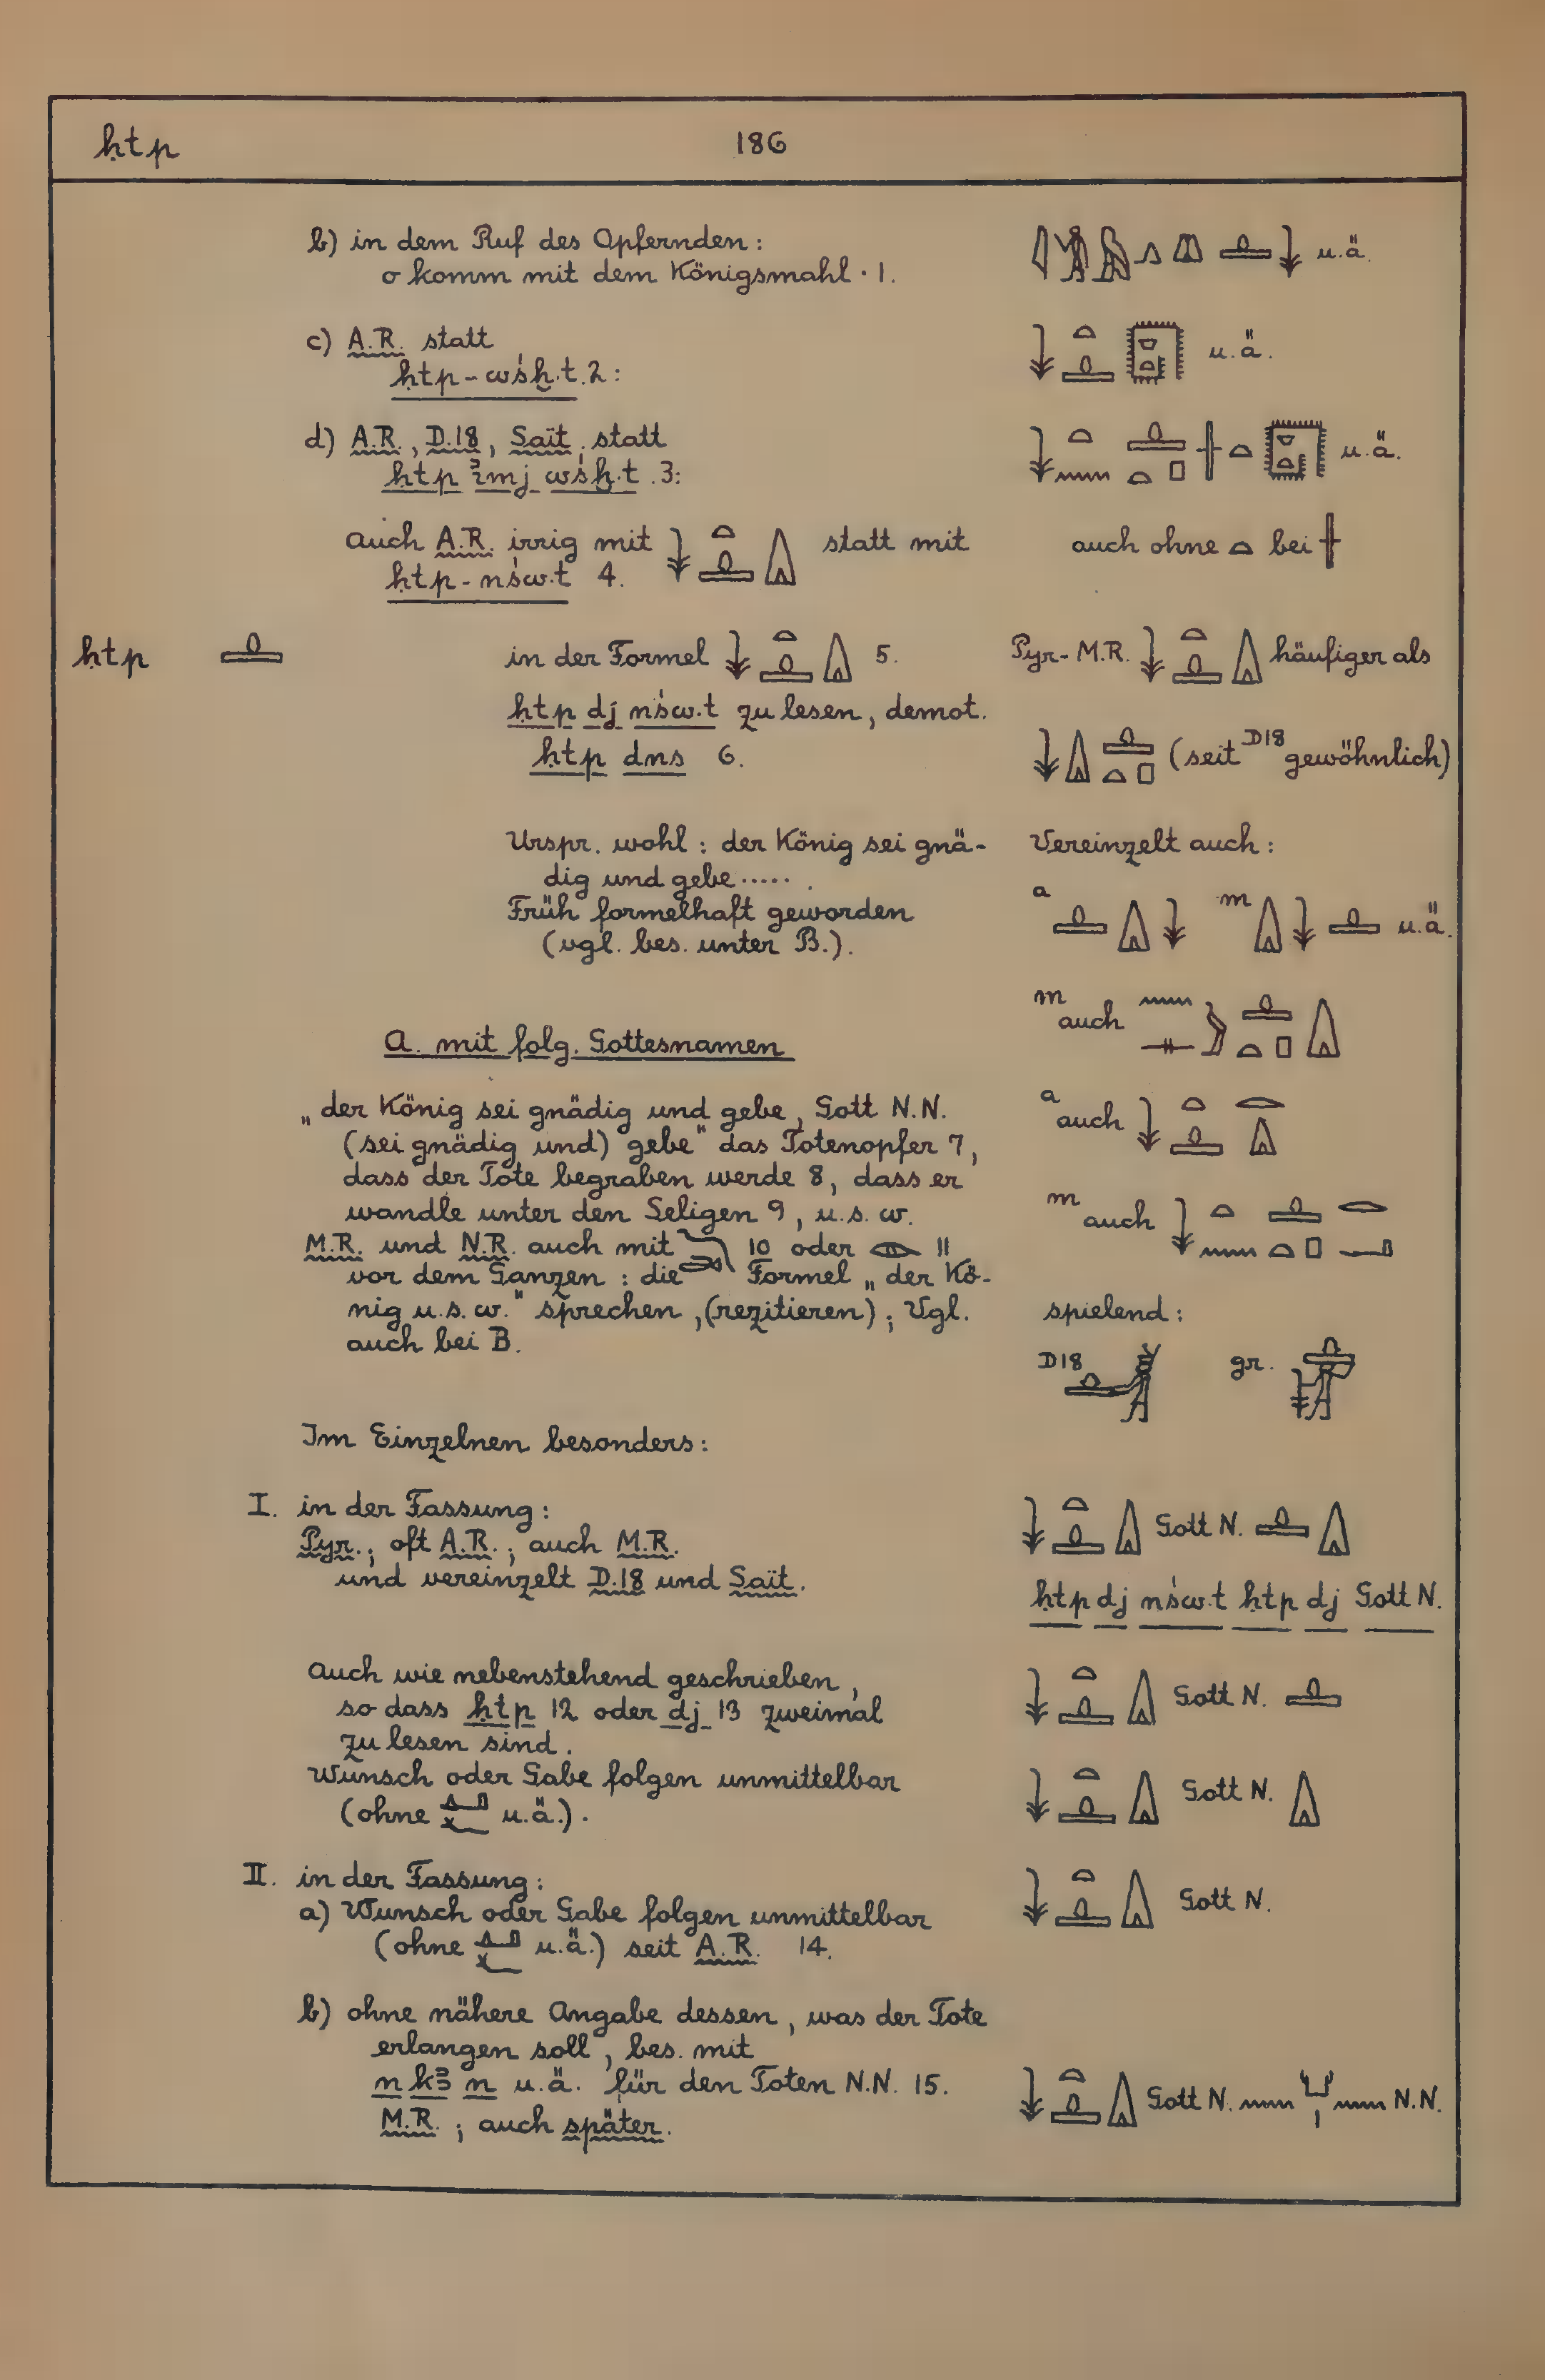 ḥtp 186
b) in dem Ruf des Opfernden: u.ä.
o komm mit dem Königsmahl · 1.
c) A.R. statt u.ä.
ḥtp-wśḫ.t. 2:
d) A.R., D.18, Saït. statt u.ä.
ḥtp ꞽmj wśḫ.t. 3:
auch A.R. irrig mit statt mit auch ohne bei
ḥtp-nśw.t 4.
ḥtp in der Formel 5. Pyr-M.R. häufiger als
ḥtp dj nśw.t zu lesen, demot.
ḥtp dns 6. (seit D18 gewöhnlich)
Urspr. wohl: der König sei gnä- Vereinzelt auch:
dig und gebe ..... .
Früh formelhaft geworden a m u.ä.
(vgl. bes. unter B.).
m auch
A. mit folg. Gottesnamen
„der König sei gnädig und gebe, Gott N.N. a auch
(sei gnädig und) gebe" das Totenopfer 7,
dass der Tote begraben werde 8, dass er
wandle unter den Seligen 9, u.s.w. m auch
M.R. und N.R. auch mit 10 oder 11
vor dem Ganzen: die Formel „der Kö-
nig u.s.w." sprechen, (rezitieren); Vgl. spielend:
auch bei B.
D18 gr.
Im Einzelnen besonders:
I. in der Fassung: Gott N.
Pyr.; oft A.R.; auch M.R.
und vereinzelt D.18 und Saït.
ḥtp dj nśw.t ḥtp dj Gott N.
Auch wie nebenstehend geschrieben, Gott N.
so dass ḥtp 12 oder dj 13 zweimal
zu lesen sind.
Wunsch oder Gabe folgen unmittelbar Gott N.
(ohne u.ä.).
II. in der Fassung: Gott N.
a) Wunsch oder Gabe folgen unmittelbar
(ohne u.ä.) seit A.R. 14.
b) ohne nähere Angabe dessen, was der Tote
erlangen soll, bes. mit
n kꜣ n u.ä. für den Toten N.N. 15. Gott N. N.N.
M.R.; auch später.